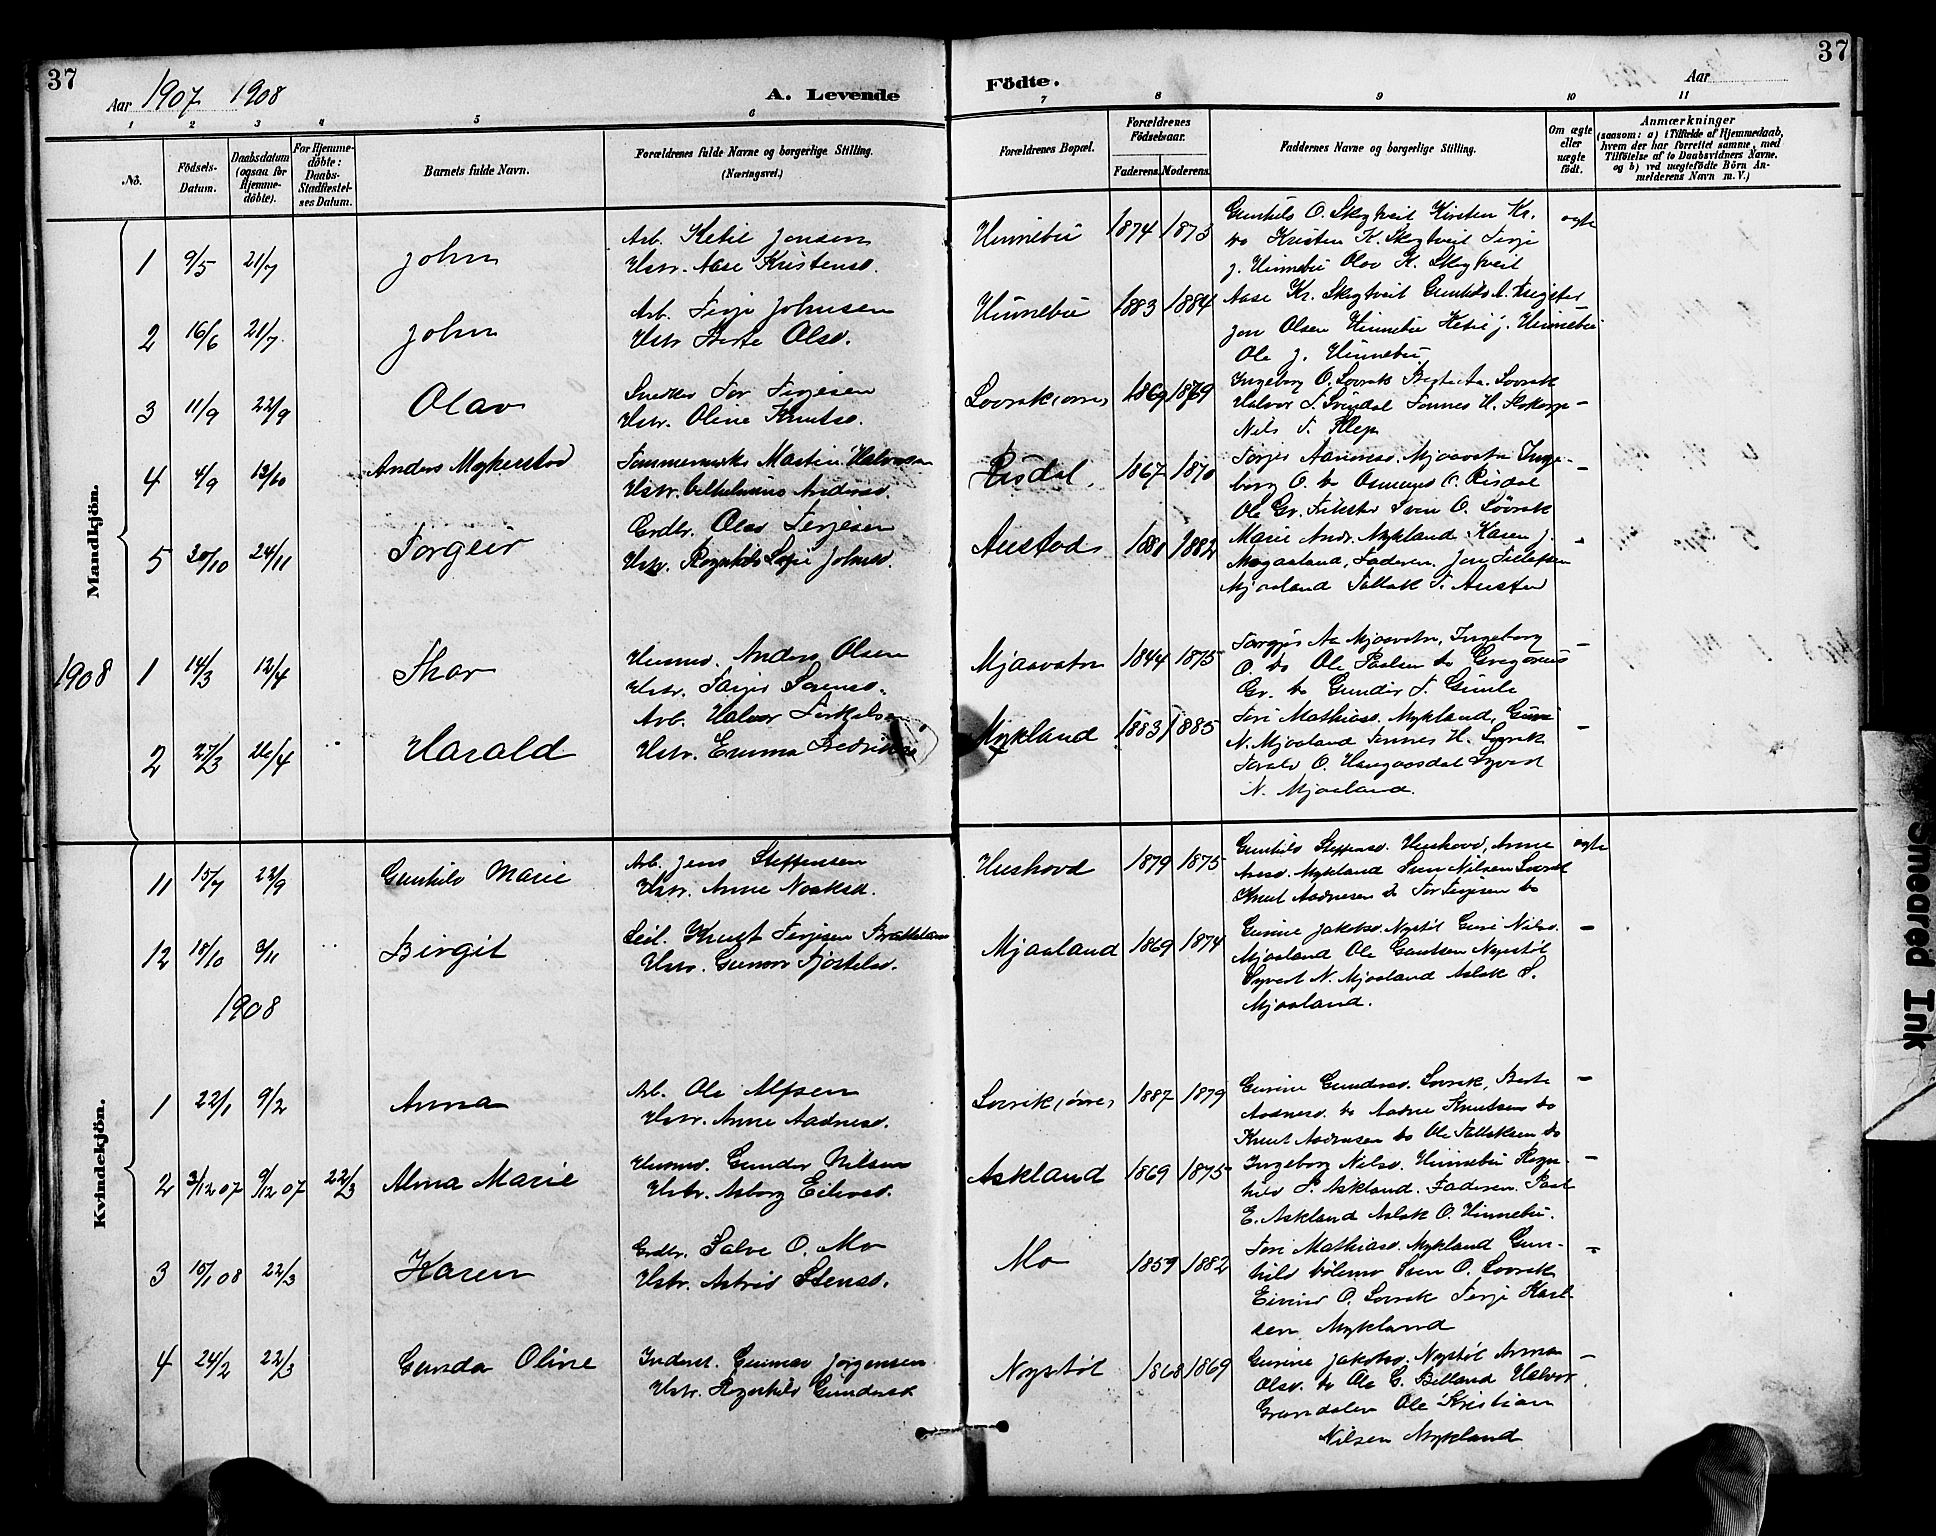 37
37
Aar 1907 1908
A. Levende
Födte.
Aar
1 2 3 4 5 6 7 8 9 10 11
No.
Födsels-Datum.
Daabsdatum (ogsaa for Hjemme-döbte).
For Hjemme-döbte: Daabs-Stadfæstel-ses Datum.
Barnets fulde Navn.
Forældrenes fulde Navne og borgerlige Stilling.
(Næringsvei.)
Forældrenes Bopæl.
Forældrenes Födselsaar.
Faderens. Moderens.
Faddernes Navne og borgerlige Stilling.
Om ægte eller uægte födt.
Anmærkninger
(saasom: a) i Tilfælde af Hjemmedaab, hvem der har forrettet samme, med Tilföielse af to Daabsvidners Navne. og b) ved uegtefödte Börn An-melderens Navn m. V.)
Mandkjön.
1 9/5 21/7 John
Arb. Ketil Jonsen
Hstr. Aase Kristensd.
Hinnebu 1874 1873
Gunhild O. Skogtveit Kirsten Kr.
do Kristen K. Skogtveit Terje
J. Hinnebu Olav K. Skogtveit
ægte
2 16/6 21/7 John
Arb. Terje Johnsen
Hstr. Berte Olsd.
Hinnebu 1883 1884
Aase Kr. Skogtveit Gunhild A.
Jon Olsen Hinnebu Ketil J. Hinnebu
Ole J. Hinnebu
3 11/9 22/9 Olav
Snedker Tor Terjesen
Hstr. Oline Knutsd.
1869 1879
Ingeborg O. Lovrak
Halvor T. Svindal Tonnes H.
Nils T. Klep
4 4/9 13/10 Anders Mykerstad
Martin Halvorsen
Hstr. Vilhelmine Andersd.
Risdal. 1867 1870
Torjer Aanonsd. Mjaavatn Inge-
borg O. do Osmund O. Risdal
Ole Gr. Sven O.
5 30/10 24/11 Torgeir
Grdbr. Olav Terjesen
Hstr. Ragnhild Sofie Johnsd.
Austad 1880 1882
Marie Andr. Mykland Karen J.
Mjaaland, Faderen. Jon Tellefsen
Mjaaland Tallak T. Austad
1908
1 14/3 12/4 Thor
Husmd. Anders Olsen
Hstr. Torjer Sorensd.
Mjaavatn 1844 1875
Aa Mjaavatn, Ingeborg
O. do Ole Paalsen do Gregorius
Gr. do Gunder T. Gimle
2 27/3 26/4 Harald
Arb. Halvor Terkelsen
Hstr. Emma
Mykland 1883 1885
Tori Mathiasd. Mykland, Guri
N. Mjaaland Tonnes H.
Torald O. Haugaasdal Syvert
N. Mjaaland.
Kvindekjön.
11 15/7 22/9 Gunhild Marie
Arb. Jens Steffensen
Hstr. Anne Noaksd.
Hushovd 1879 1875
Gunhild Steffensd. Hushovd, Anne
Mykland Sven Nilsen
Knut Aadnesen do Tor Terjesen do
ægte
12 18/10 3/11 Birgit
Knut Terjesen
Hstr. Gunvor
Mjaaland 1869 1874
Gurine Jakobsd. Nystöl Guri Nilsd.
Mjaaland Ole Nystöl
Syvert N. Mjaaland Aslak S.
Mjaaland.
1908
1 22/1 9/2 Anna
Arb. Ole Alfsen
Hstr. Anne Aadnesd.
1887 1879
Gurine Gundersd. Berte
Aadnesd. do Aadne Knutsen do
Knut Aadnesen do Ole Tallaksen do
2 3/12 07 9/12 07 22/3 Alma Marie
Husmd. Gunder Nilsen
Hstr. Asborg Eilevsd.
Askland 1869 1875
Ingeborg Nilsd. Hinnebu Ragn-
hild P. Askland. Faderen. Paal
E. Askland Aslak O. Hinnebu.
3 15/1 08 22/3 Karen
Grdbr. Salve O. Mo
Hstr. Astrid Stensd.
Mo 1859 1882
Tori Mathiasd. Mykland Gun-
hild Sven O.
Eivind O. Terje Karl-
sen Mykland
4 24/2 22/3 Gunda Oline
Inderst. Gunnar Jörgensen
Hstr. Ragnhild Gundersd.
Nystöl 1868 1869
Gurine Jakobsd. Nystöl Anna
Olsd. do Ole G. Halvor
Grandalen Ole Kristian
Nilsen Mykland
Smeared Ink